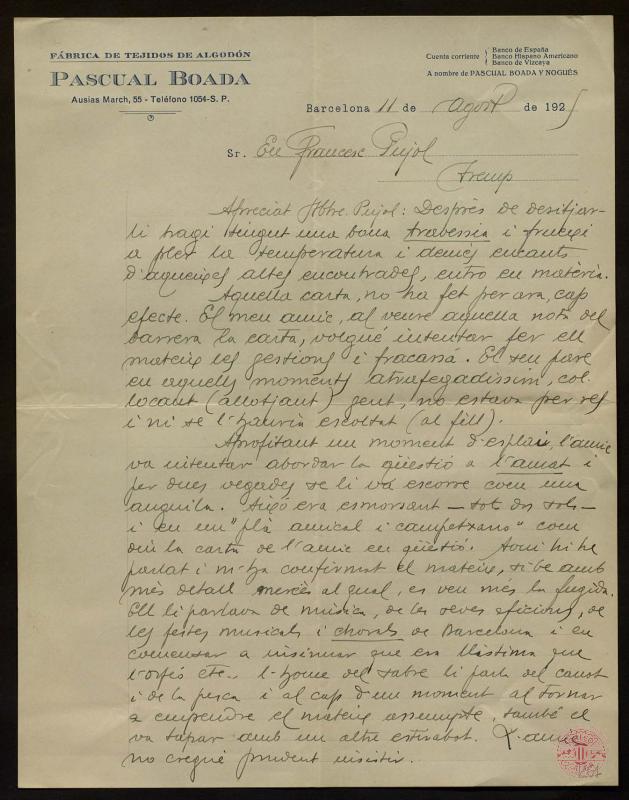 FÁBRICA DE TEJIDOS DE ALGODÓN
PASCUAL BOADA
Ausias March, 55 - Teléfono 1054-S. P.
Cuenta corriente
Banco de España
Banco Hispano Americano
Banco de Vizcaya
A nombre de PASCUAL BOADA Y NOGUÉS
Barcelona 11 de Agost de 192
Sr. En Francesc Pujol
Tremp
Apreciat Mtre. Pujol: Desprès de desitjar-
li hagi tingut una bona travessia i frueixi
a pler la temperatura i demés encants
d'aqueixes altes encontrades, entro en matèria.
Aquella carta, no ha fet per ara, cap
efecte. El meu amic, al veure aquella nota del
barrera la carta, volgué intentar fer ell
mateix les gestions i fracassá. El seu pare
en aquells moments atrafegadissim, col.
locant (allotjant) gent, no estava per res
i ni se l'hauria escoltat (al fill).
Aprofitant un moment d'esplai, l'amic
va intentar abordar la qüestió a l'amat i
per dues vegades se li va escorre com una
anguila. Aixó era esmorsant — sols dos sols —
i en un "plà amical i campetxano" com
diu la carta de l'amic en qüestió. Aqui hi he
parlat i m'ha confirmat el mateix, si bé amb
més detall mercès al qual, es veu més la fugida.
Ell li parlava de música, de les seves aficions, de
les festes musicals i chorals de Barcelona i en
comensar a insinuar que era llástima que
l'orfeó etc. l'home del sabre li parla del
i de la pesca i al cap d'un moment al tornar
a empendre el mateix assumpte, també el
va tapar amb un altre estirabot. L'amic
no cregué prudent insistir.